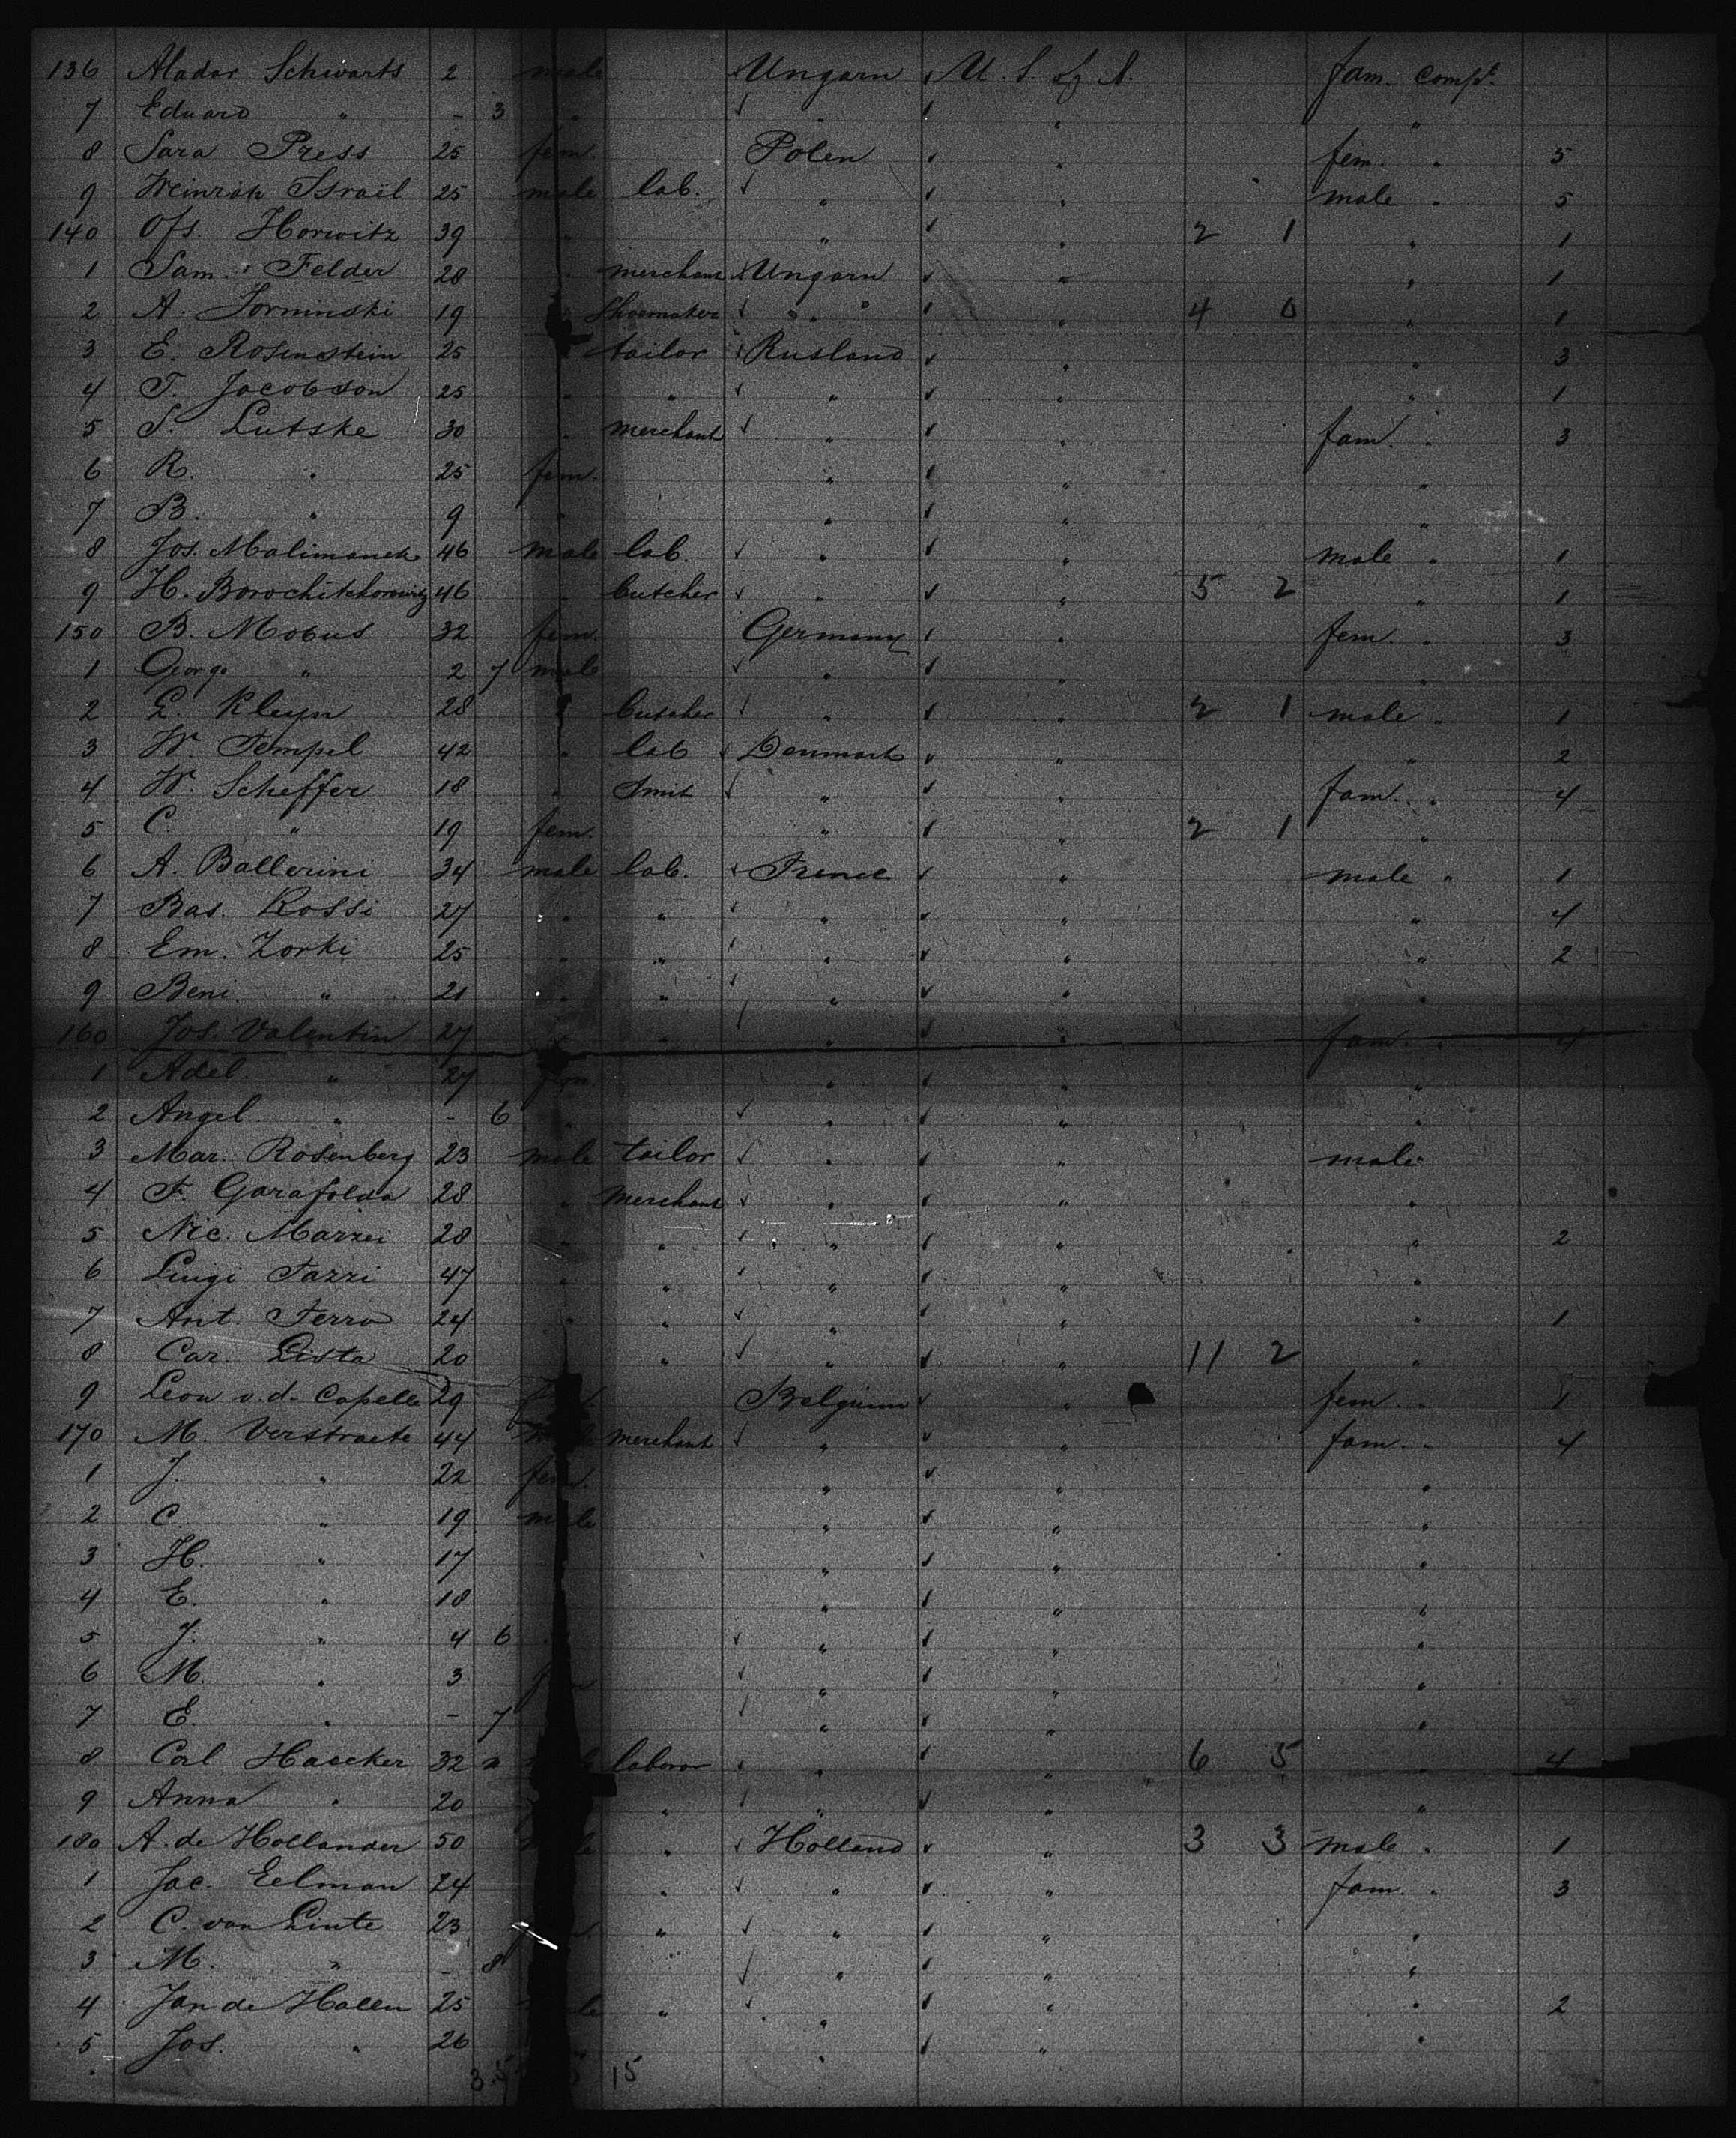 136 Alador Schwarts 2 male Ungarn U. S. of A. fam. compt.
7 Eduard " - 3 " " " "
8 Sara Press 25 fem. Polen " fem. " 5
9 Heinrich Israël 25 male lab. " " male " 5
140 Ofs. Horwitz 39 " " " 2 1 " 1
1 Sam. Felder 28 " merchant Ungarn " " 1
2 A. Sorminski 19 Shoemaker " " " 4 0 " 1
3 E. Rosenstein 25 tailor Rusland " " 3
4 T. Jacobson 25 " " " " " 1
5 S. Lutske 30 " merchant " " fam. " 3
6 R. " 25 fem. " " "
7 B. " 9 " " " "
8 Jos. Malimanek 46 male lab. " " male " 1
9 H. 46 " butcher " " 5 2 " 1
150 B. Mobus 32 fem. Germany " fem. " 3
1 George " 2 7 male " " "
2 L. Kleyn 28 butcher " " 2 1 male " 1
3 W. Tempel 42 " lab Denmark " " 2
4 W. Scheffer 18 " Smit " " fam. " 4
5 C. " 19 fem. " " 2 1 "
6 A. Ballerini 34 male lab. " male " 1
7 Bas. Rossi 27 " " " " " 4
8 Em. Zorki 25 " " " " " 2
9 Beni " 21 " " " " "
160 Jos. Valentin 27 " " " " fam. " 4
1 Adel " 27 fem. " " "
2 Angel " - 6 " " " "
3 Mar. Rosenberg 23 male tailor " " male
4 F. Garafolda 28 " merchant " " "
5 Nic. Marzei 28 " " " " " 2
6 Luigi Fazzi 47 " " " " "
7 Ant. Ferro 24 " " " " " 1
8 Car. Lista 20 " " " 11 2 "
9 Leon v. d. Capelle 29 Belgium " fem. " 1
170 M. Verstraete 44 merchant " " fam. " 4
1 J. " 22 fem. " " "
2 C. " 19 male " " "
3 H. " 17 " " "
4 E. " 18 " " "
5 J. " 4 6 " " "
6 M. " 3 " " "
7 E. " - 7 " " "
8 Carl Haecker 32 laboror " " 6 5 " 4
9 Anna " 20 " " " "
180 A. de Hollander 50 " Holland " 3 3 male " 1
1 Jac. Eelman 24 " " " fam. " 3
2 C. van Linte 23 " " " "
3 M. " - 8 " " "
4 Jan de Hallen 25 " " " " 2
5 Jos. " 26 " " "
15